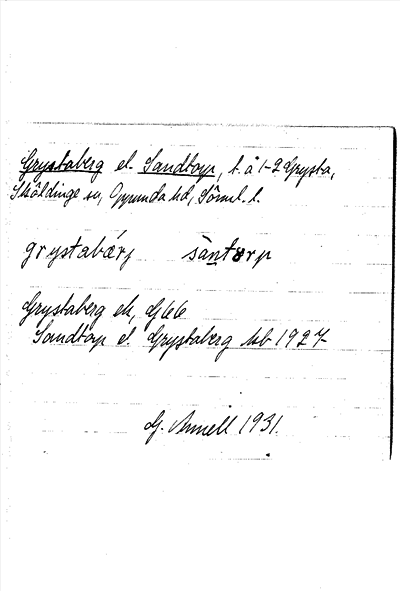 Grystaberg el. Sandtorp, t. å 1-2 Grysta,
Sköldinge sn, Oppunda hd, Sörml. l.
grystabærj sàntørp
Grystaberg ek, GEK
Sandtorp el. Grystaberg hb 1927
G. Annell 1931.